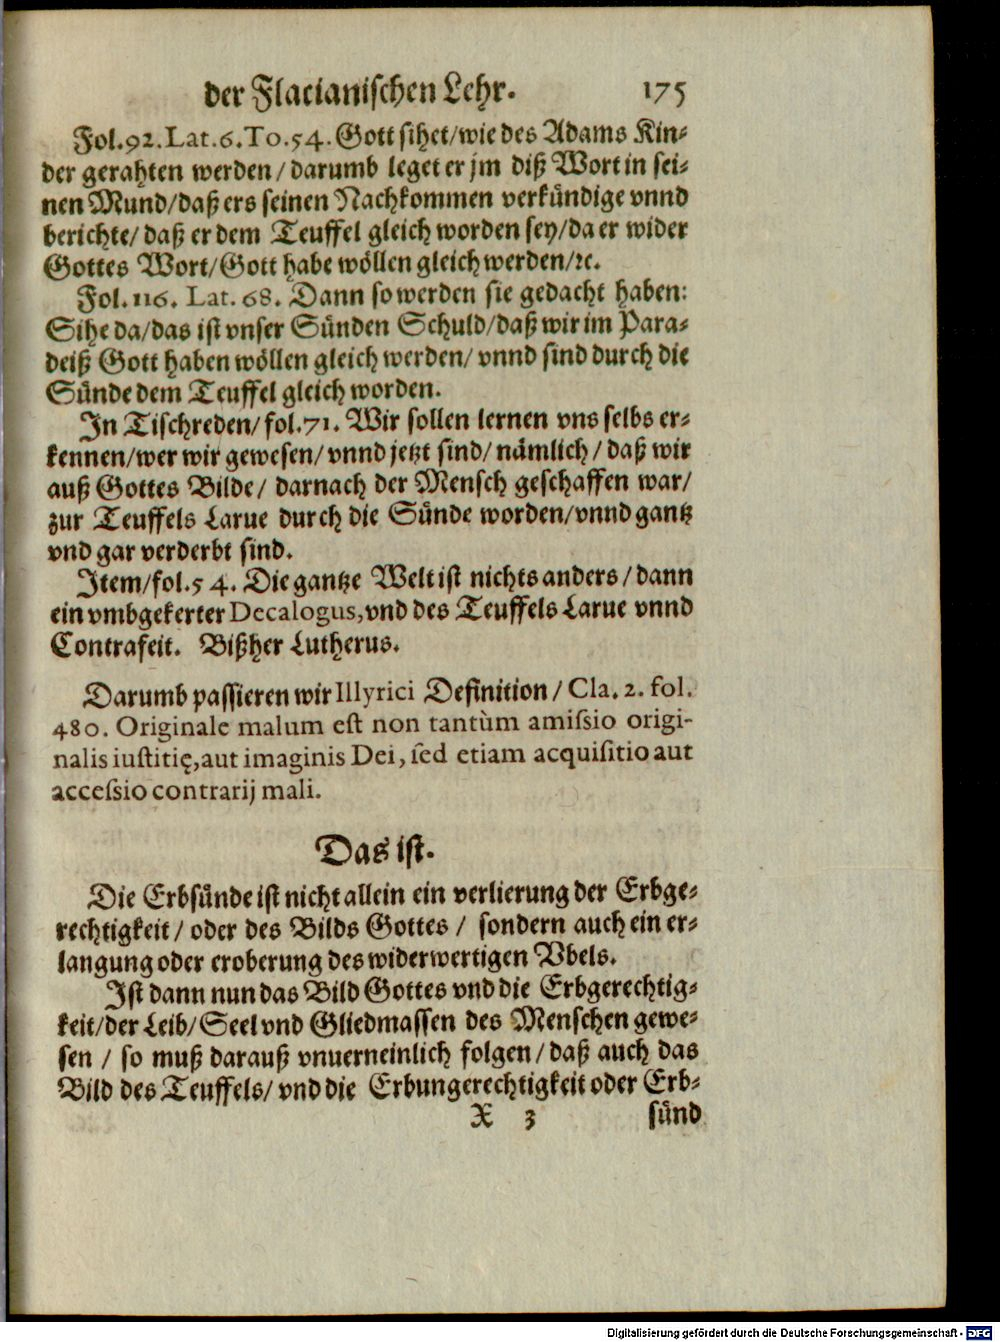 der Flacianischen Lehr. 175
Fol. 92. Lat. 6. To. 54. Gott sihet/ wie des Adams Kin-
der gerahten werden / darumb leget er jm diß Wort in sei-
nen Mund/ daß ers seinen Nachkommen verkündige vnnd
berichte/ daß er dem Teuffel gleich worden sey/ da er wider
Gottes Wort/ Gott habe wöllen gleich werden/ ꝛc.
Fol. 116. Lat. 68. Dann so werden sie gedacht haben:
Sihe da/ das ist vnser Sünden Schuld/ daß wir im Para-
deiß Gott haben wöllen gleich werden/ vnnd sind durch die
Sünde dem Teuffel gleich worden.
In Tischreden/ fol. 71. Wir sollen lernen vns selbs er-
kennen/ wer wir gewesen/ vnnd jetzt sind/ nämlich / daß wir
auß Gottes Bilde/ darnach der Mensch geschaffen war/
zur Teuffels Larue durch die Sünde worden/ vnnd gantz
vnd gar verderbt sind.
Item/ fol. 5 4. Die gantze Welt ist nichts anders / dann
ein vmbgekerter Decalogus, vnd des Teuffels Larue vnnd
Contrafeit. Bißher Lutherus.
Darumb passieren wir Illyrici Definition / Cla. 2. fol.
480. Originale malum est non tantùm amissio origi-
nalis iustitię, aut imaginis Dei, sed etiam acquisitio aut
accessio contrarij mali.
Das ist.
Die Erbsünde ist nicht allein ein verlierung der Erbge-
rechtigkeit / oder des Bilds Gottes / sondern auch ein er-
langung oder eroberung des widerwertigen Vbels.
Ist dann nun das Bild Gottes vnd die Erbgerechtig-
keit/ der Leib/ Seel vnd Gliedmassen des Menschen gewe-
sen / so muß darauß vnuerneinlich folgen / daß auch das
Bild des Teuffels/ vnd die Erbungerechtigkeit oder Erb-
X 3 sünd
Digitalisierung gefördert durch die Deutsche Forschungsgemeinschaft - DFG